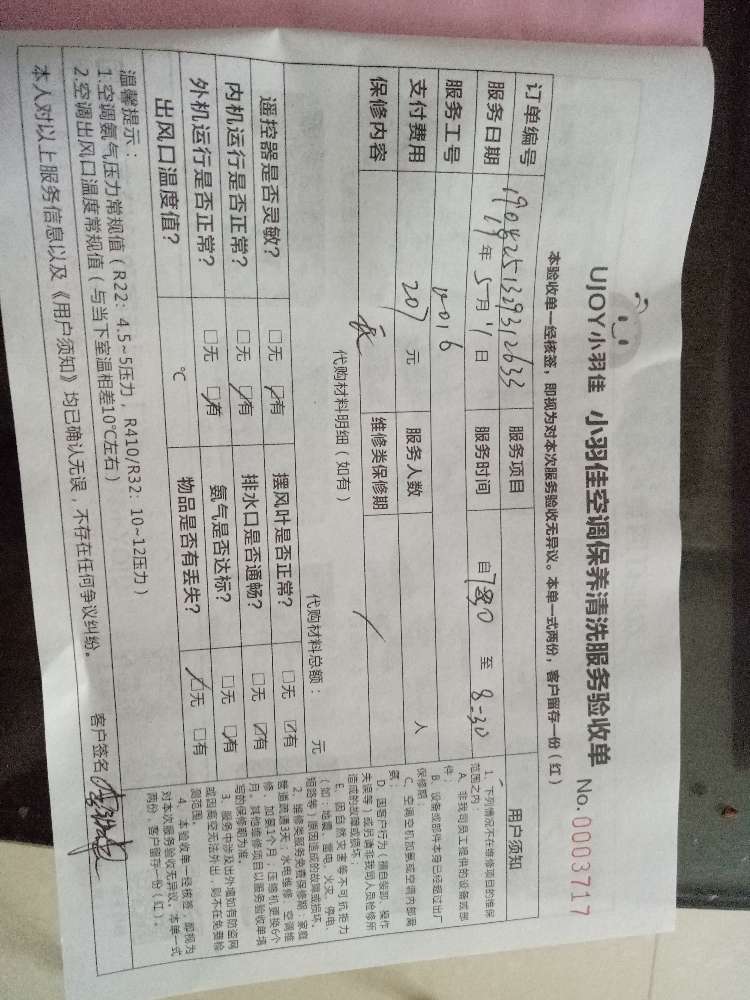 UJOY小羽佳 小羽佳空调保养清洗服务验收单 No. 0003717
本验收单一经核签，即视为对本次服务验收无异议。本单一式两份，客户留存一份（红）
订单编号 服务项目
服务日期 19年5月11日 服务时间 自 至 8-30
服务工号 016
支付费用 207 元 服务人数 人
保修内容 维修类保修期
代购材料明细（如有） 代购材料总额： 元
遥控器是否灵敏？ □无 □有 摆风叶是否正常？ □无 ☑有
内机运行是否正常？ □无 ☑有 排水口是否通畅？ □无 ☑有
外机运行是否正常？ □无 ☑有 氨气是否达标？ □无 ☑有
出风口温度值？ ℃ 物品是否有丢失？ ☑无 □有
温馨提示：
1.空调氨气压力常规值（R22：4.5~5压力，R410/R32：10~12压力）
2.空调出风口温度常规值（与当下室温相差10℃左右）
本人对以上服务信息以及《用户须知》均已确认无误，不存在任何争议纠纷。
客户签名
用户须知
1、下列情况不在维修项目的维保
范围之内：
A、非我司员工提供的设备或部
件；
B、设备或部件本身已经超过出厂
保修期；
C、空调空机加氨或空调内部漏
氨；
D、因客户行为（擅自装卸、操作
失误等）或另请非我司人员检修所
造成的故障或损坏；
E、因自然灾害等不可抗拒力
（如：地震、雷电、火灾、停电、
短路等）原因造成的故障或损坏。
2、维修类服务免费保修期：家庭
管道疏通3天；水电维修、空调维
修、加氨1个月；压缩机更换6个
月；其他维修项目以服务验收单填
写的保修期为准。
3、服务中涉及出外墙如有防盗网
或因高空无法外出，则不在免费检
测范围。
4、本验收单一经核签，即视为
对本次服务验收无异议。本单一式
两份，客户留存一份（红）。